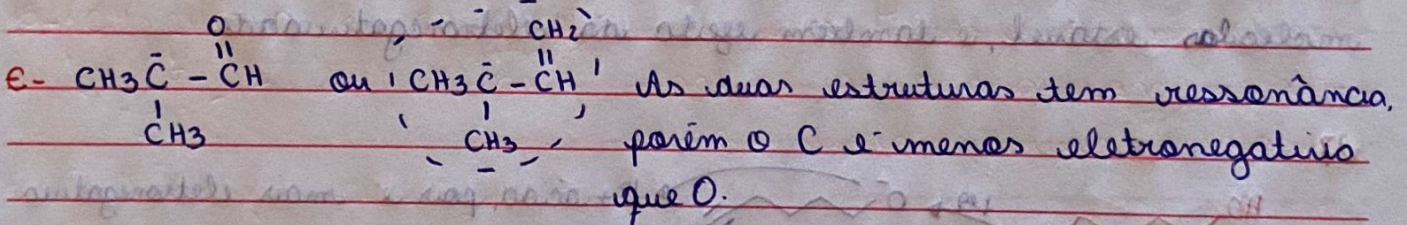 O CH2
|| ||
E- CH3C̄ - CH ou CH3C̄ - CH As duas estruturas tem ressonância,
| |
CH3 CH3 porém o C é menos eletronegativo
que O.